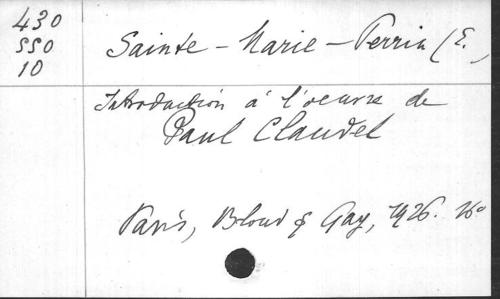 430
550
10
Sainte-Marie-Perrin (E.,
Introduction à l'oeuvre de
Paul Claudel
Paris, Bloud & Gay, 1926. 16°